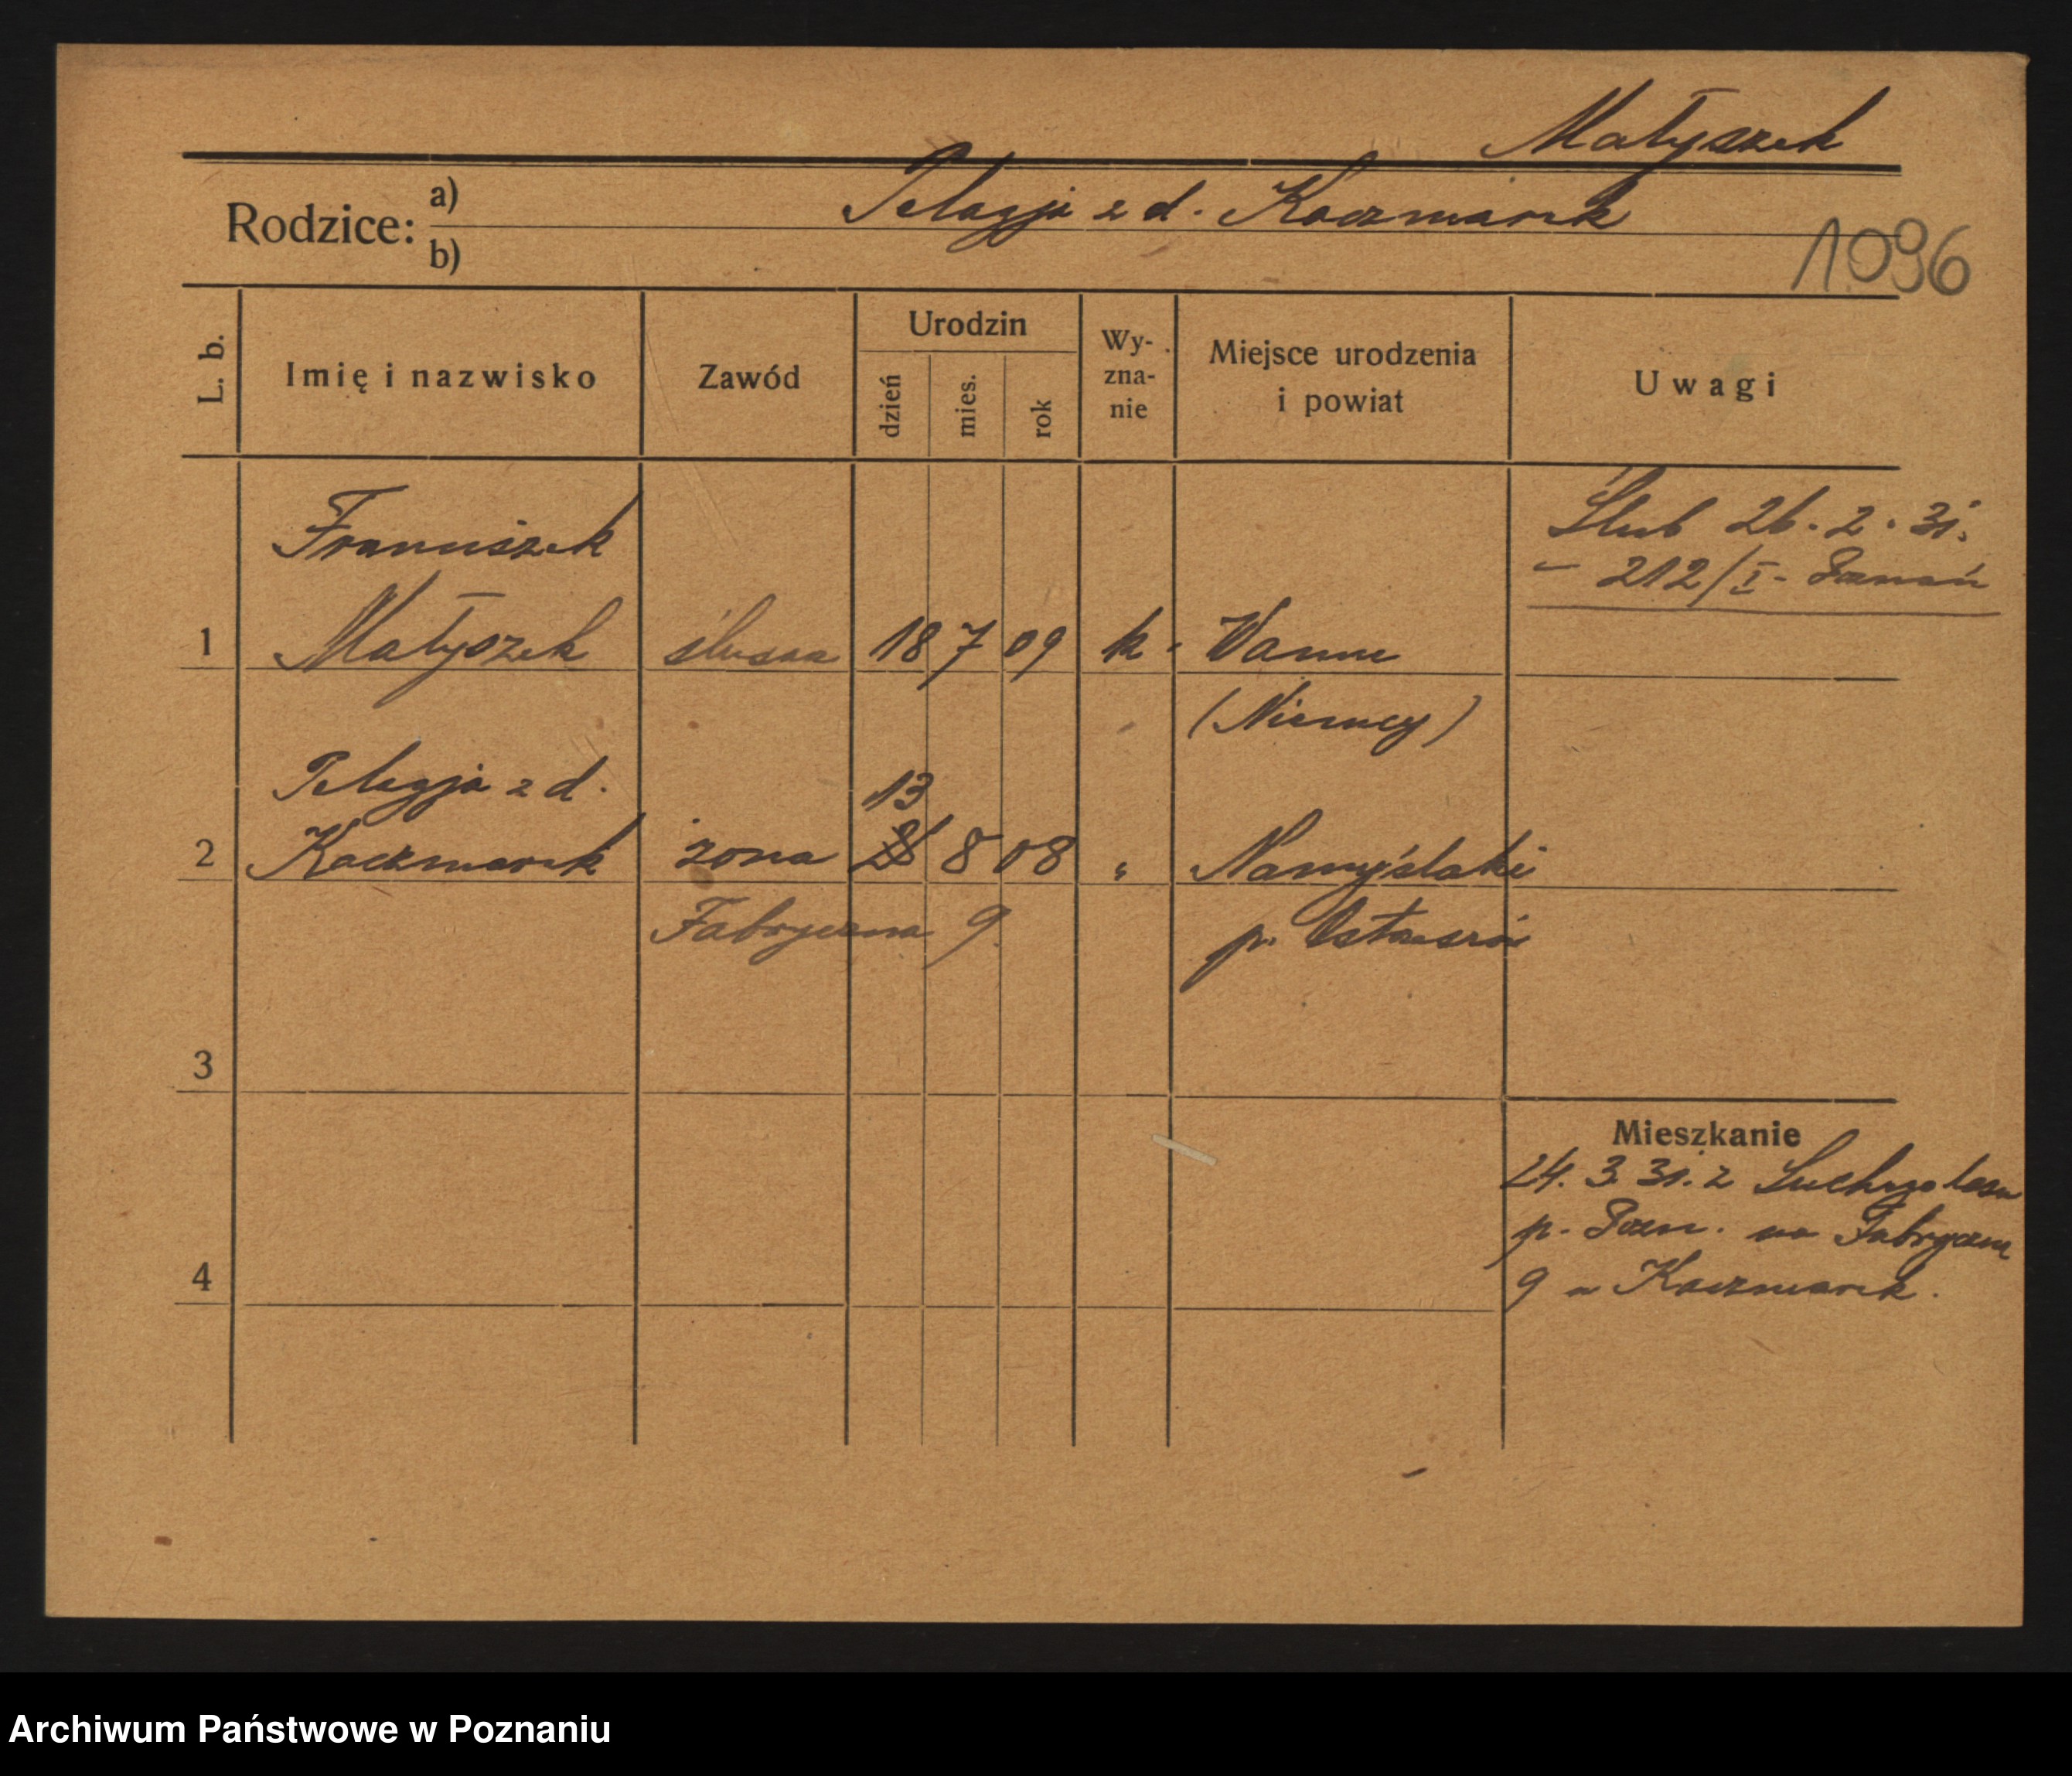 Matyszek
Rodzice: a) Pelagja z d. Kaczmarek
b)
1096
L. b.
Imię i nazwisko
Zawód
Urodzin
dzień
mies.
rok
Wy-
zna-
nie
Miejsce urodzenia
i powiat
Uwagi
Franciszek
Ślub 26. 2. 31.
– 212/I - Poznań
1 Matyszek ślusarz 18 7 09 k. Wanne
(Niemcy)
Pelagja z d. 13
2 Kaczmarek żona 28 8 08 " Namyślaki
Fabryczna 9 p. Ostrzeszów
3
Mieszkanie
24. 3. 31. z Suchegolasu
p. Pozn. na Fabryczna
4
9 u Kaczmarek.
Archiwum Państwowe w Poznaniu